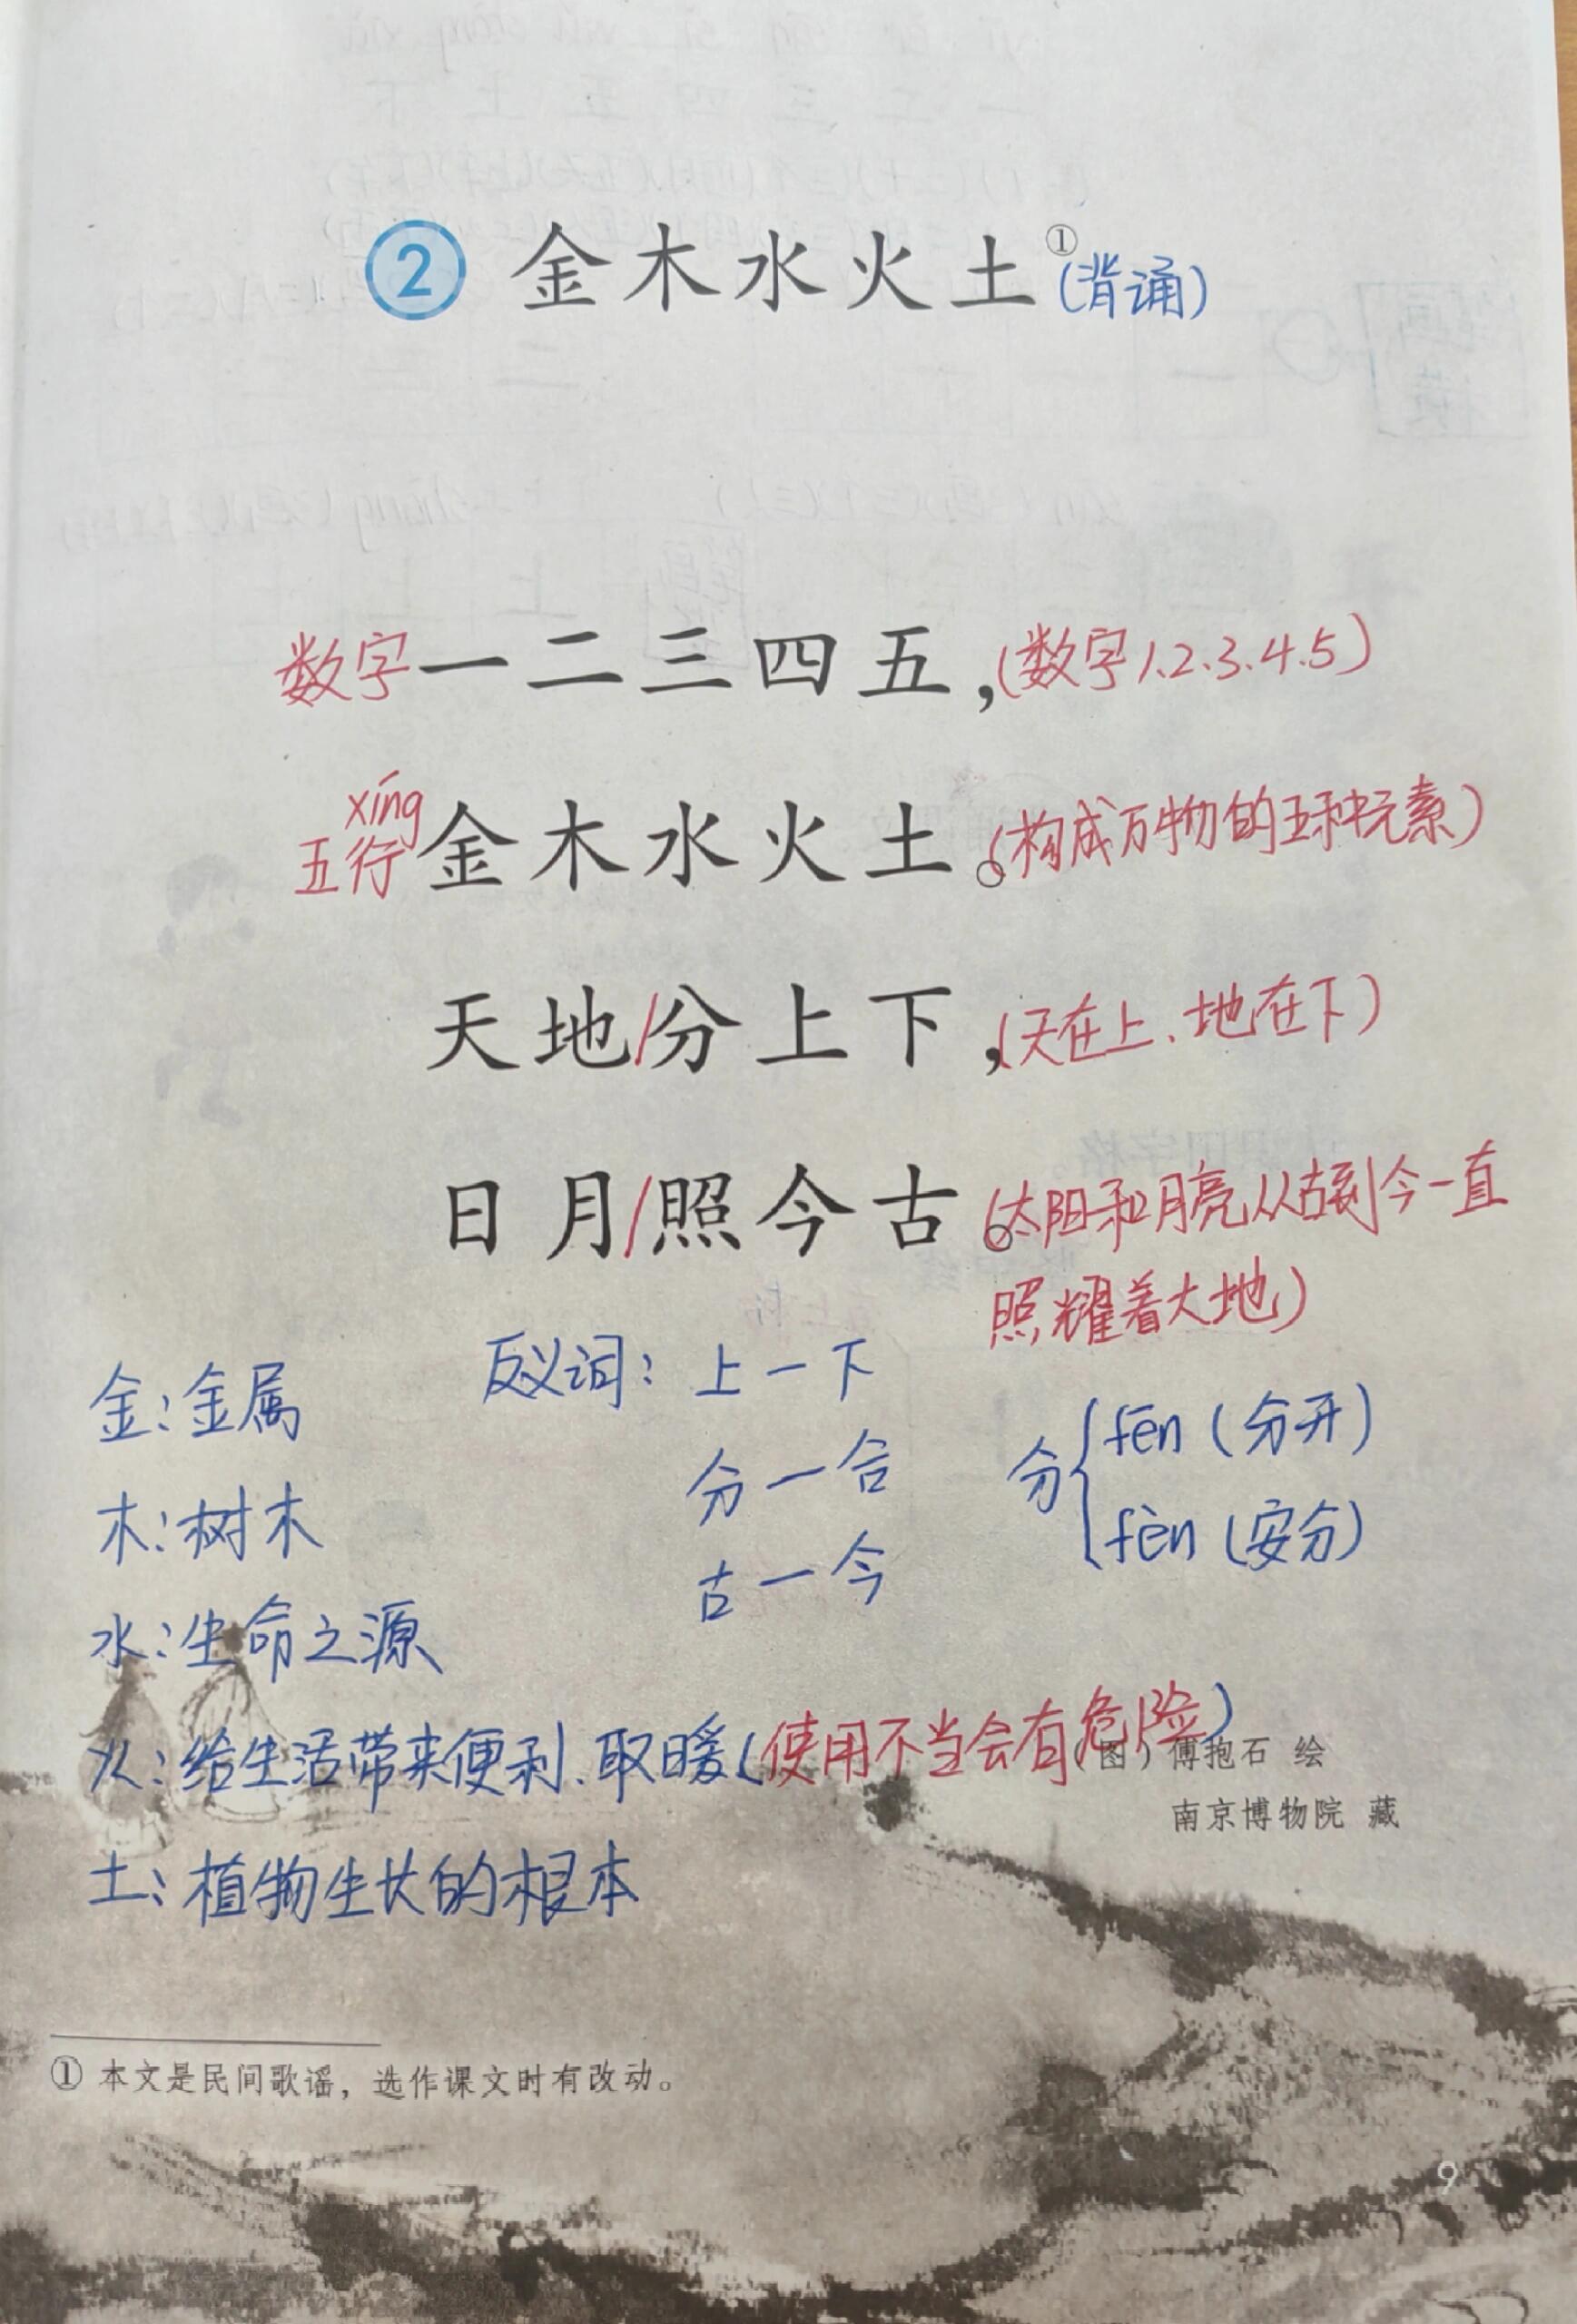 ② 金木水火土①(背诵)
数字一二三四五,(数字1.2.3.4.5)
xíng
五行金木水火土。(构成万物的五种元素)
天地/分上下,(天在上、地在下)
日月/照今古。(太阳和月亮从古到今一直
照耀着大地)
金:金属
反义词: 上—下
分—合
古—今
分{fēn (分开)
fèn (安分)
木:树木
水:生命之源
火:给生活带来便利、取暖(使用不当会有危险)
(图)傅抱石 绘
南京博物院 藏
土:植物生长的根本
① 本文是民间歌谣，选作课文时有改动。
9